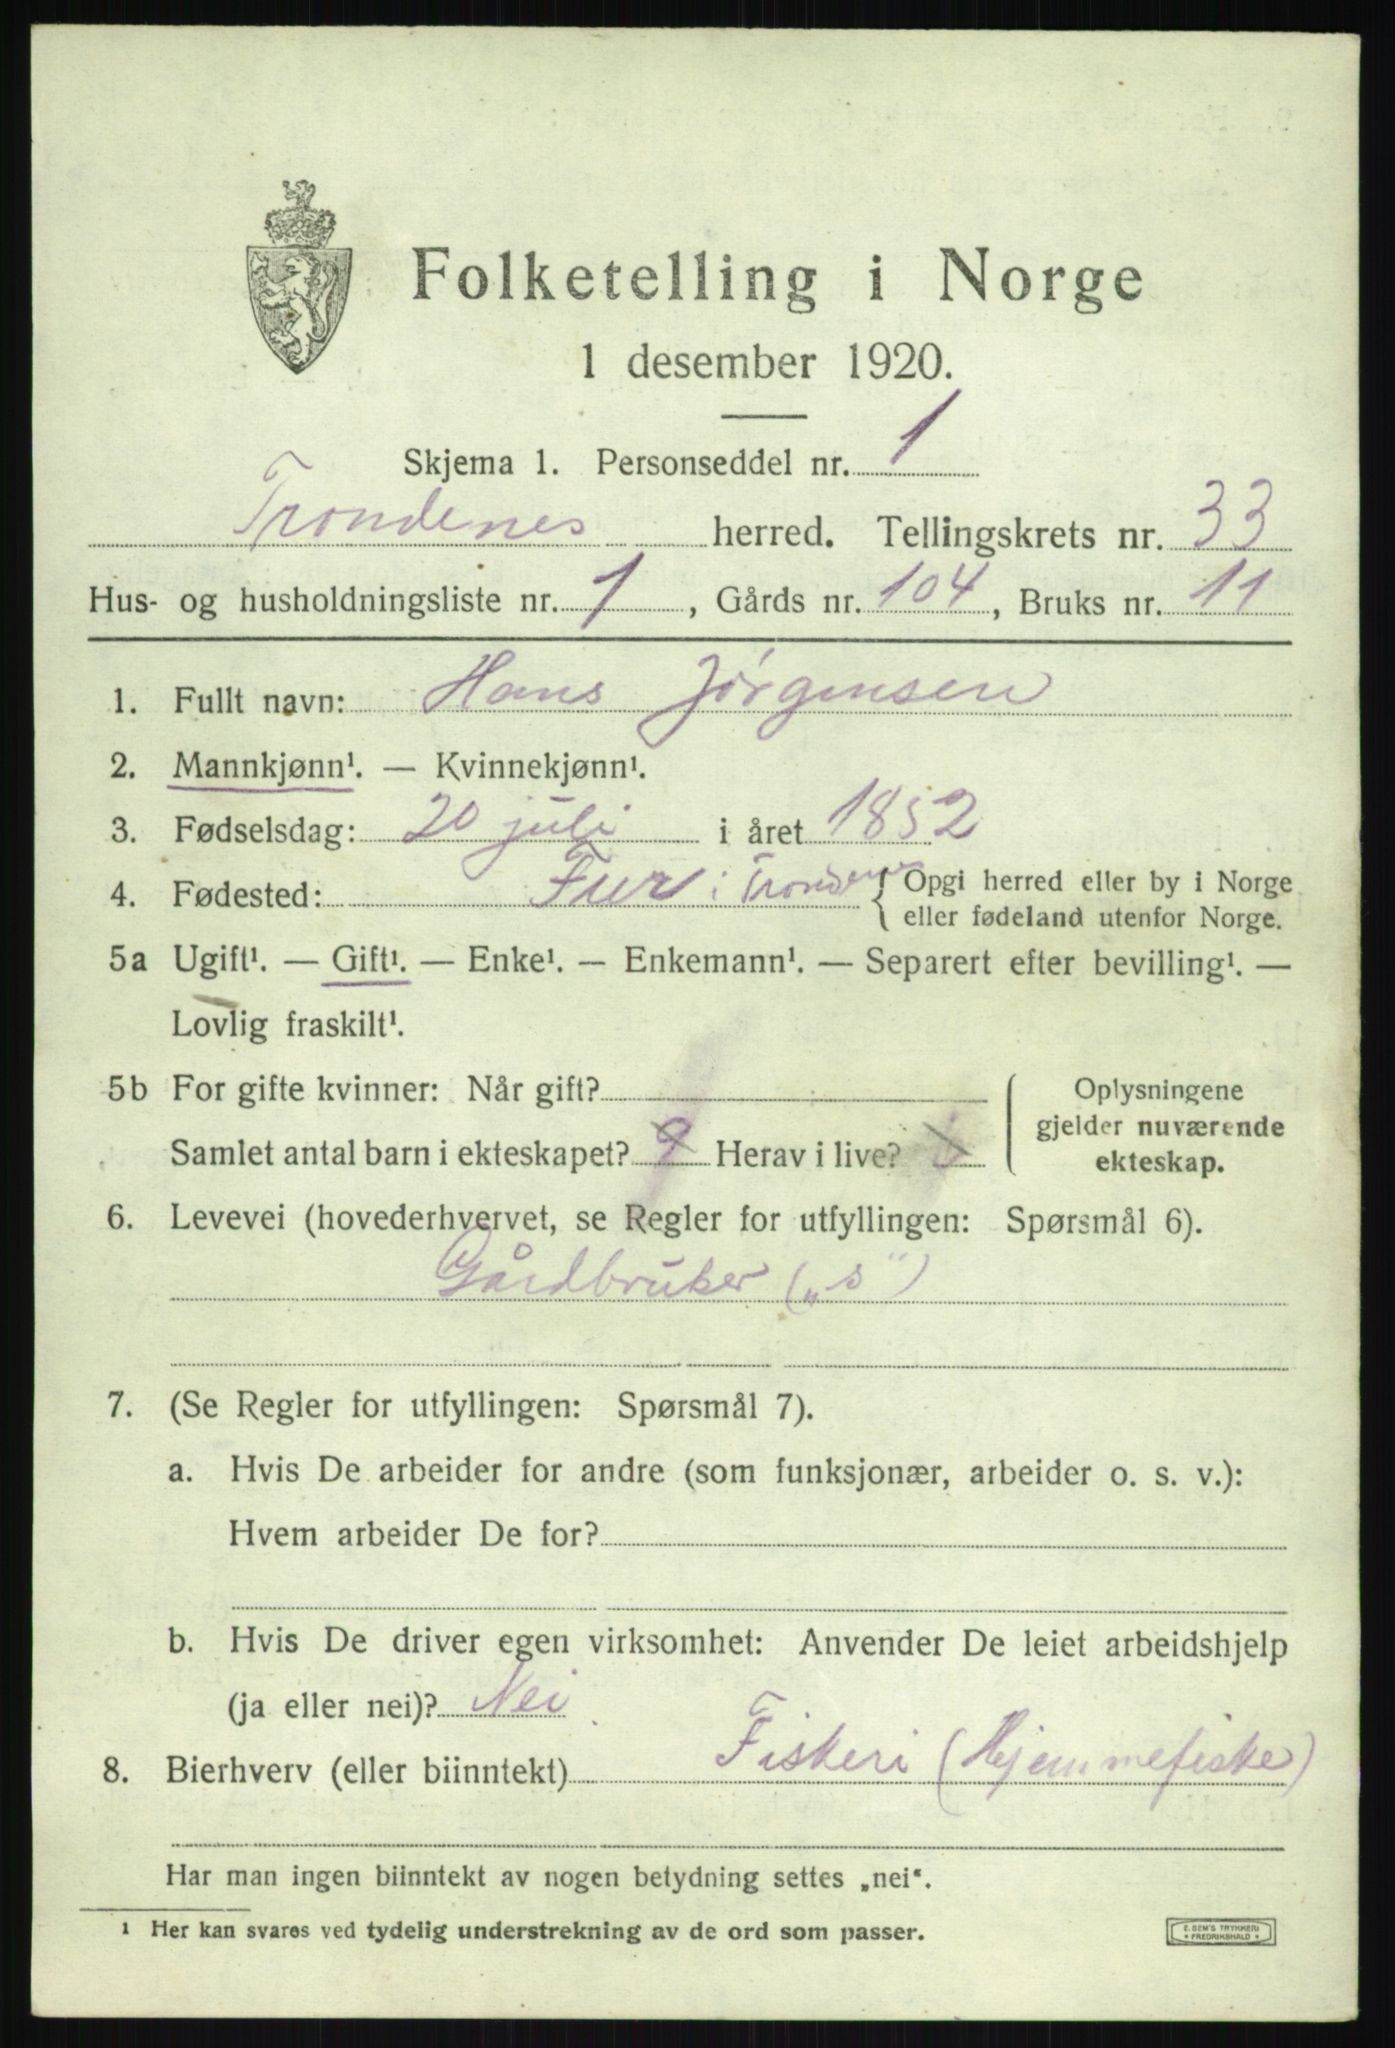 Folketelling i Norge
1 desember 1920.
Skjema 1. Personseddel nr. 1
Trondenes herred. Tellingskrets nr. 33
Hus- og husholdningsliste nr. 1, Gårds nr. 104, Bruks nr. 11
1. Fullt navn: Hans Jørgensen
2. Mannkjønn¹. — Kvinnekjønn¹.
3. Fødselsdag: 20 juli i året 1852
4. Fødested: i Trondenes { Opgi herred eller by i Norge
eller fødeland utenfor Norge.
5a Ugift¹. — Gift¹. — Enke¹. — Enkemann¹. — Separert efter bevilling¹. —
Lovlig fraskilt¹.
5b For gifte kvinner: Når gift?
Samlet antal barn i ekteskapet? 9 Herav i live?
Oplysningene
gjelder nuværende
ekteskap.
6. Levevei (hovederhvervet, se Regler for utfyllingen: Spørsmål 6).
Gårdbruker („s“)
7. (Se Regler for utfyllingen: Spørsmål 7).
a. Hvis De arbeider for andre (som funksjonær, arbeider o. s. v.):
Hvem arbeider De for?
b. Hvis De driver egen virksomhet: Anvender De leiet arbeidshjelp
(ja eller nei)? Nei
8. Bierhverv (eller biinntekt) Fiskeri (Hjemmefiske)
Har man ingen biinntekt av nogen betydning settes „nei“.
¹ Her kan svares ved tydelig understrekning av de ord som passer.
E. SEM'S TRYKKERI
* FREDRIKSHALD *